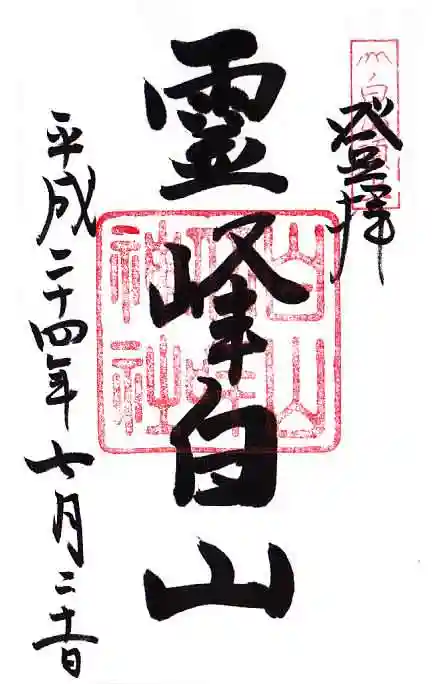 登拝
霊峰白山
白山
比咩
神社
平成二十四年七月二十一日